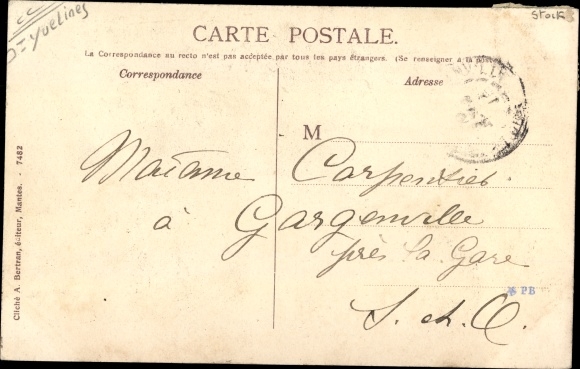 Dt Yvelines
Stock
CARTE POSTALE.
La Correspondance au recto n'est pas acceptée par tous les pays étrangers. (Se renseigner à la poste)
Correspondance
Adresse
M
Madame Carpentier
à Gargenville
près la Gare
S. et O.
PB
Cliché A. Bertran, éditeur, Mantes. - 7482